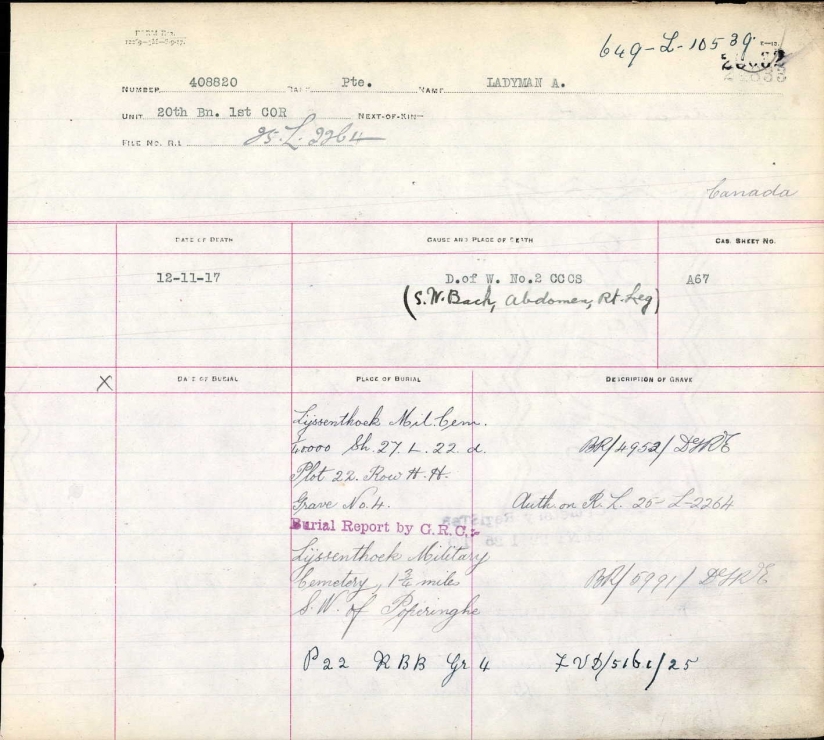 649-L-10539
NUMBER 408820 Pte. NAME LADYMAN A.
UNIT 20th Bn. 1st COR NEXT-OF-KIN
FILE NO. R.L. 25-L-2264
Canada
DATE OF DEATH CAUSE AND PLACE OF DEATH CAS. SHEET NO.
12-11-17 D.of W. No.2 CCCS A67
(S.W. Back, Abdomen, Rt. Leg)
X DATE OF BURIAL PLACE OF BURIAL DESCRIPTION OF GRAVE
Lijssenthoek Mil. Cem.
Sh. 27. L. 22. d. BR/4952/DGRE
Plot 22. Row H.H.
Grave No. 4. Auth. on R.L. 25-L-2264
Burial Report by G.R.C:-
Lijssenthoek Military
Cemetery, 1¾ miles BR/5991/DGRE
S.W. of Poperinghe
P 22 R BB Gr 4